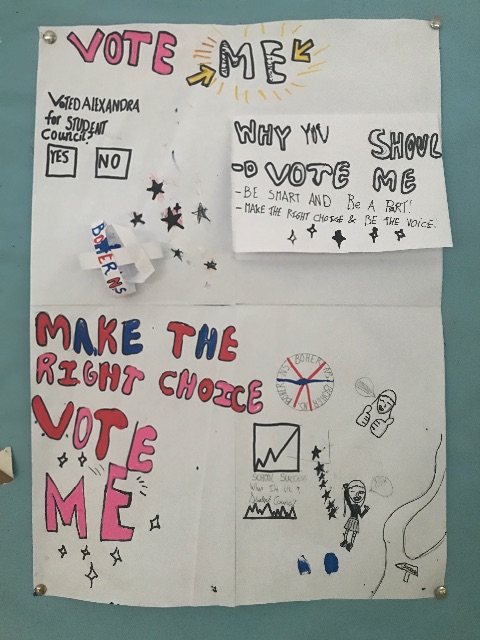 VOTE ME
VOTED ALEXANDRA
for STUDENT
COUNCIL?
YES NO
WHY YOU SHOUL
D VOTE ME
- BE SMART AND Be A PART!
- MAKE THE RIGHT CHOICE & BE THE VOICE!
MAKE THE
RIGHT CHOICE
VOTE
ME
SCHOOL SUCCESS